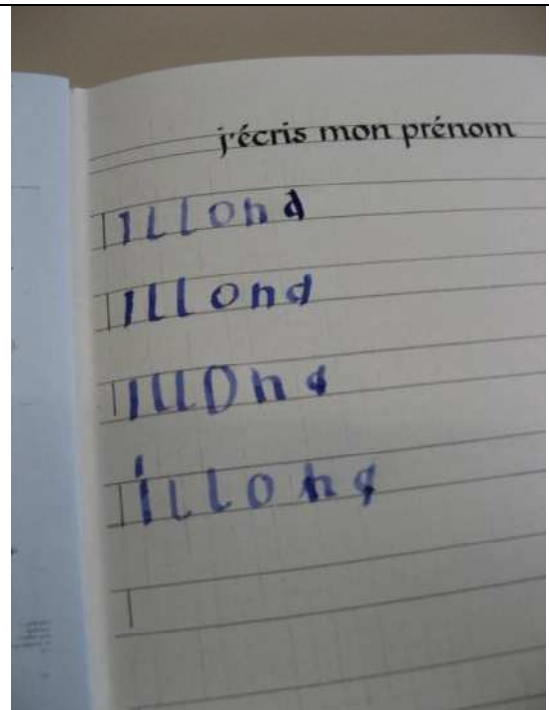 j'écris mon prénom
ILLona
Illona
IllOna
iLLona